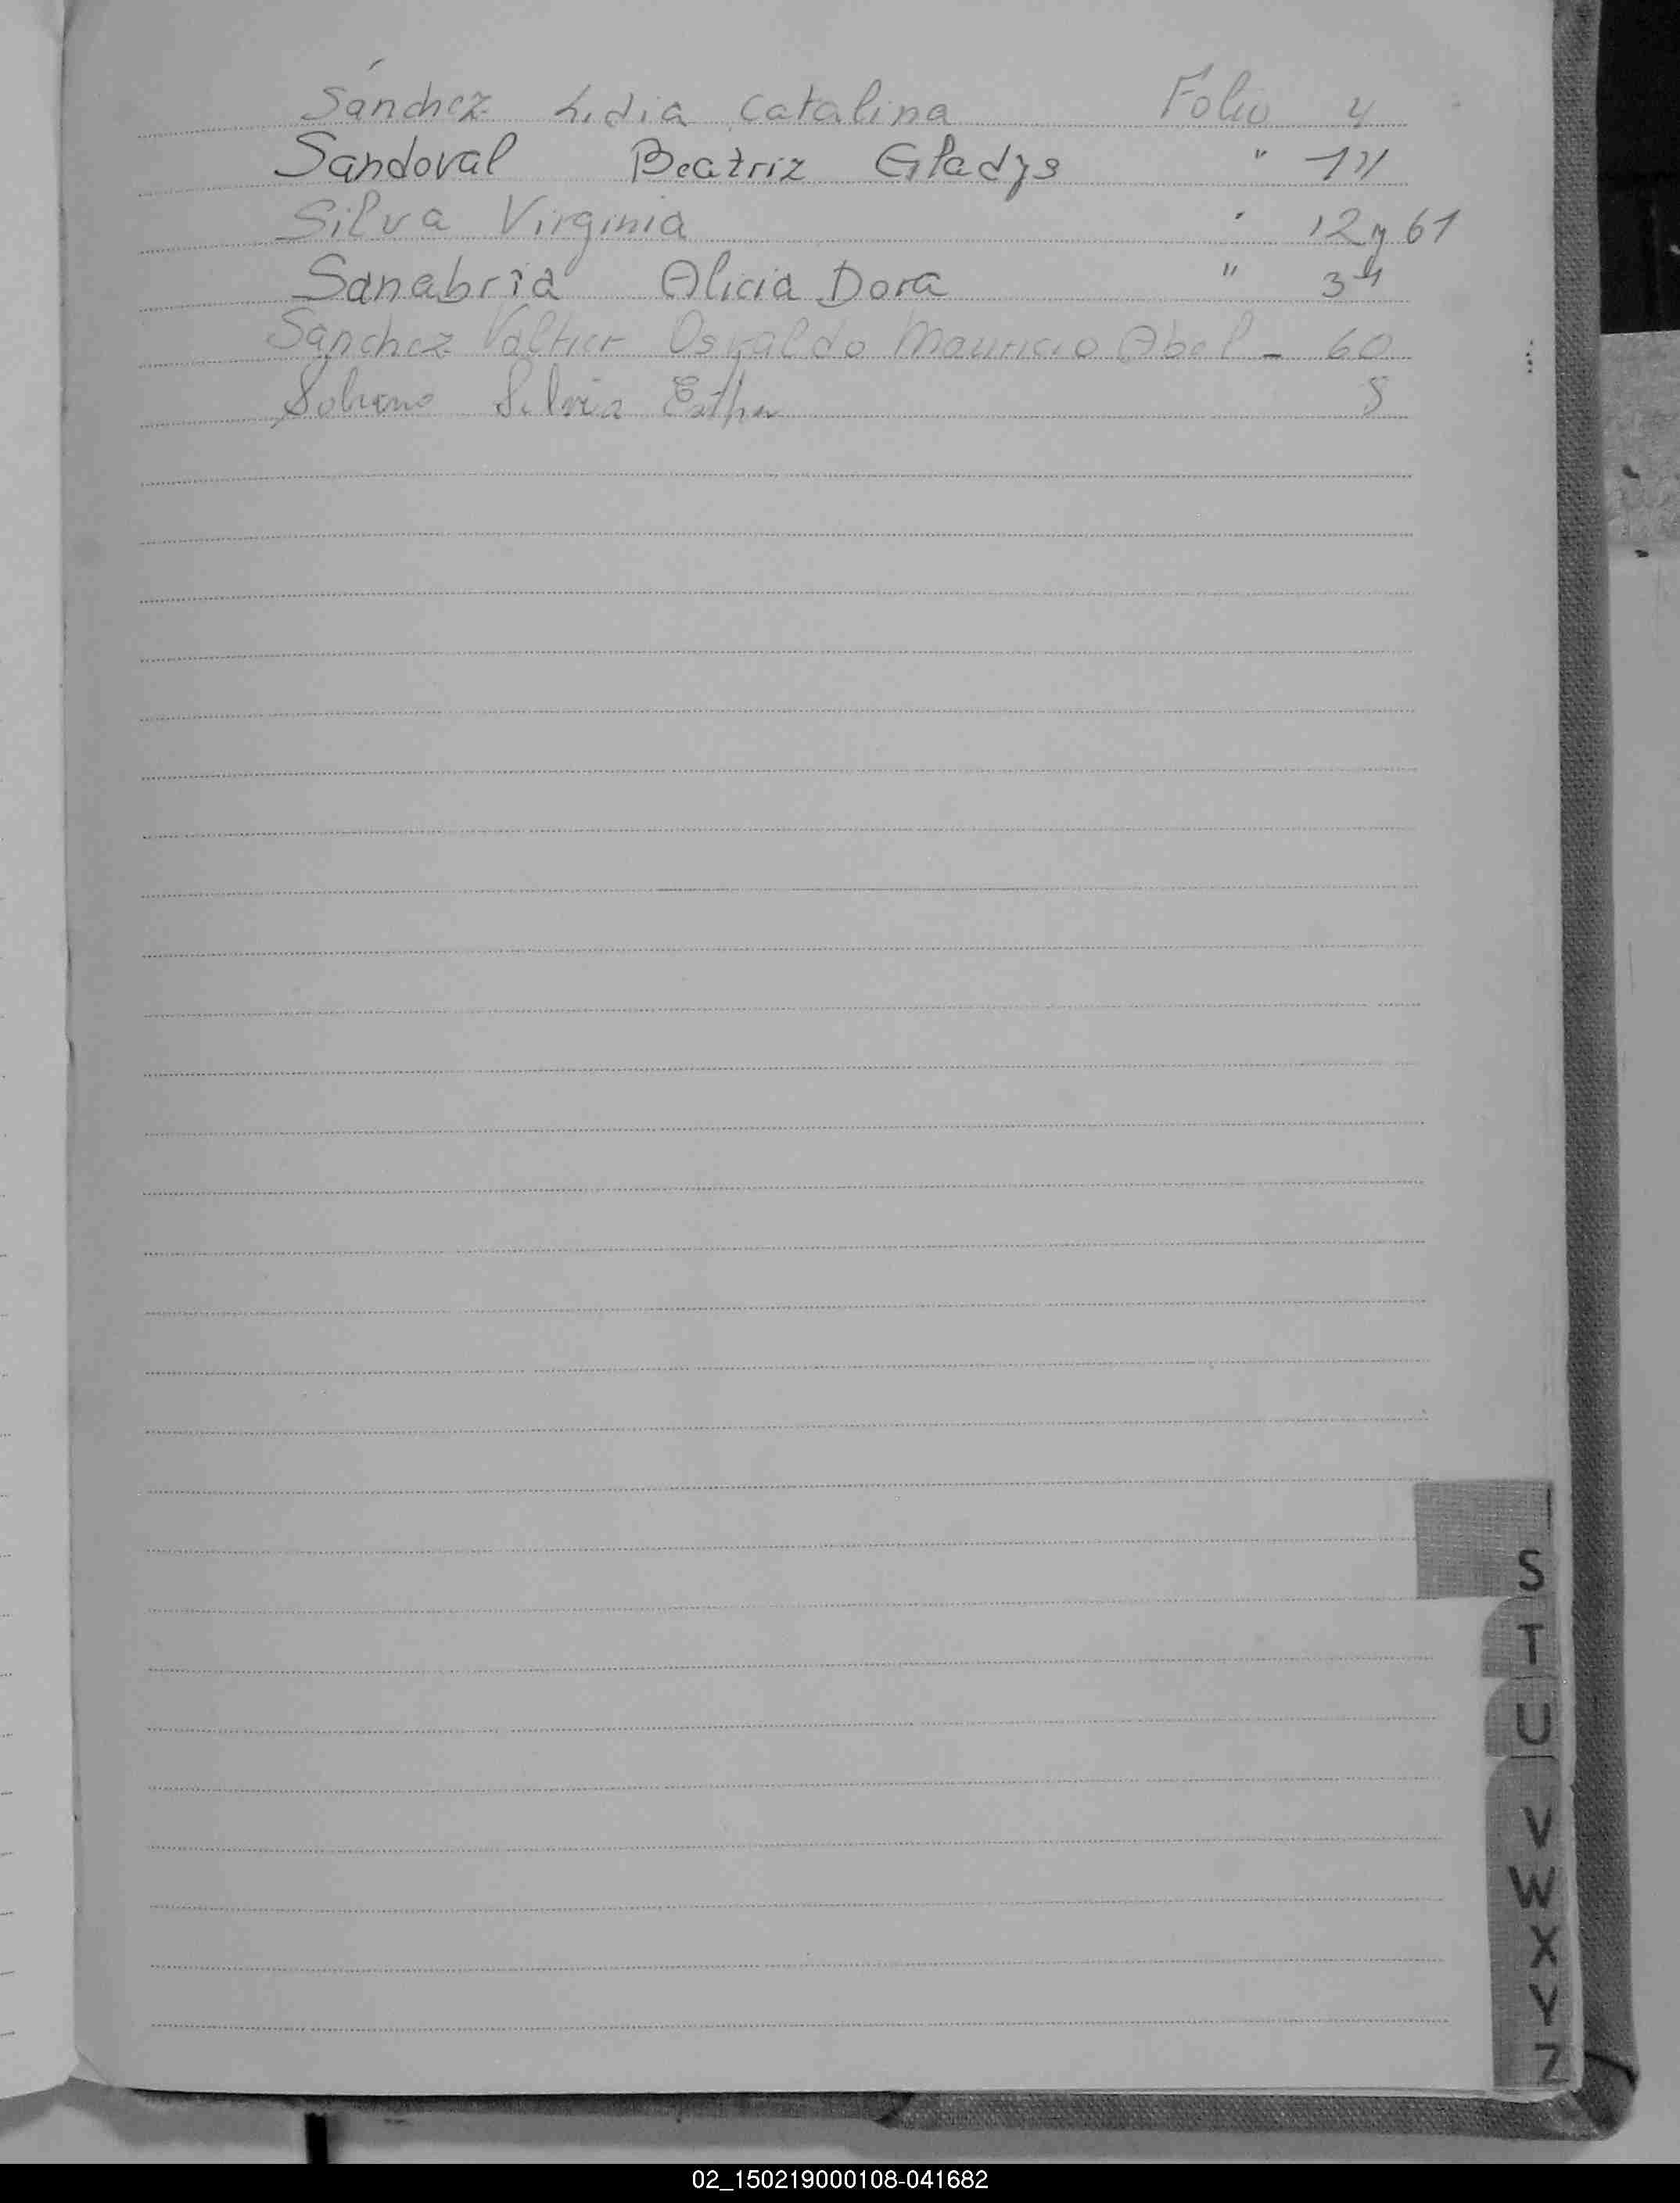 Sánchez Lidia Catalina Folio 4
Sandoval Beatriz Gladys " 14
Silva Virginia " 12 y 61
Sanabria Alicia Dora " 34
Sanchez Valtier Osvaldo Mauricio Abel - 60
Silvia Esther 8
S
T
U
V
W
X
Y
Z
02_150219000108-041682